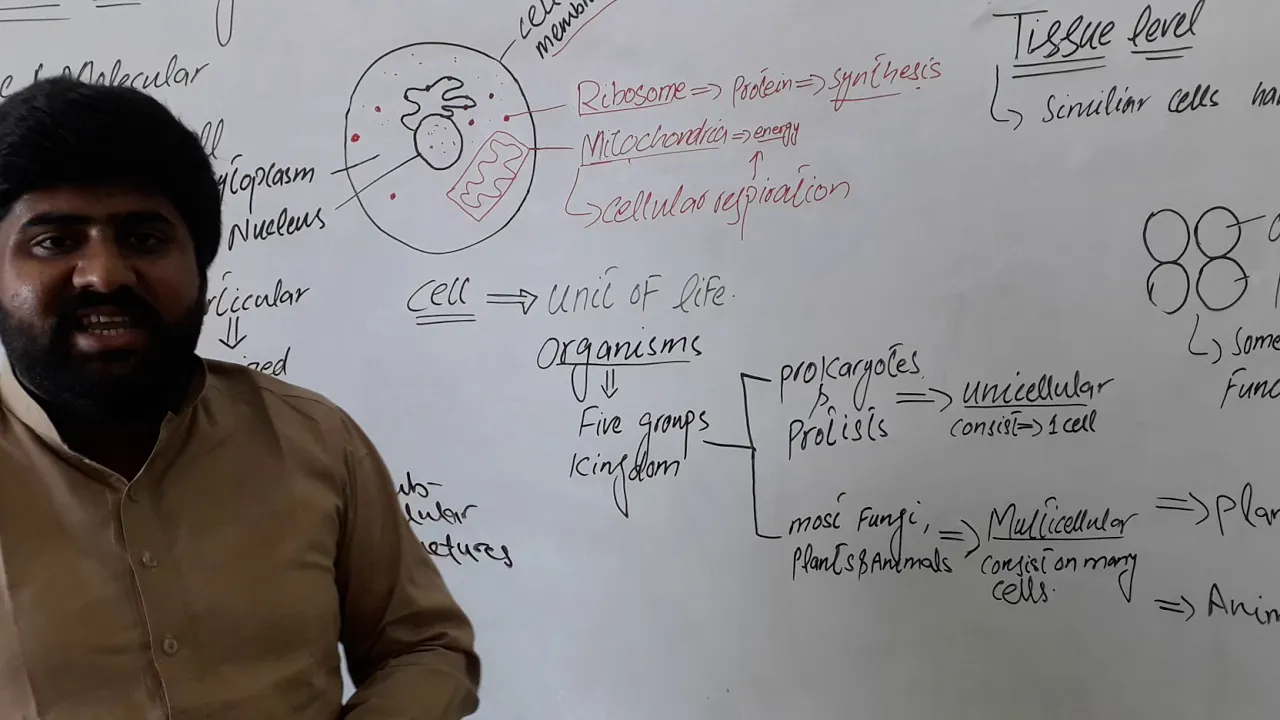 Molecular
cell
membr
Ribosome => Protein => synthesis
Mitochondria => energy
cellular respiration
ytoplasm
Nucleus
Cell => unit of life.
Organisms
Five groups
Kingdom
prokaryotes
Protists
=> unicellular
consist => 1 cell
most Fungi,
Plants & Animals
=> Multicellular
consist on many
cells.
=> plan
=> Anim
Tissue level
similiar cells ha
Some
Func
ub-
lular